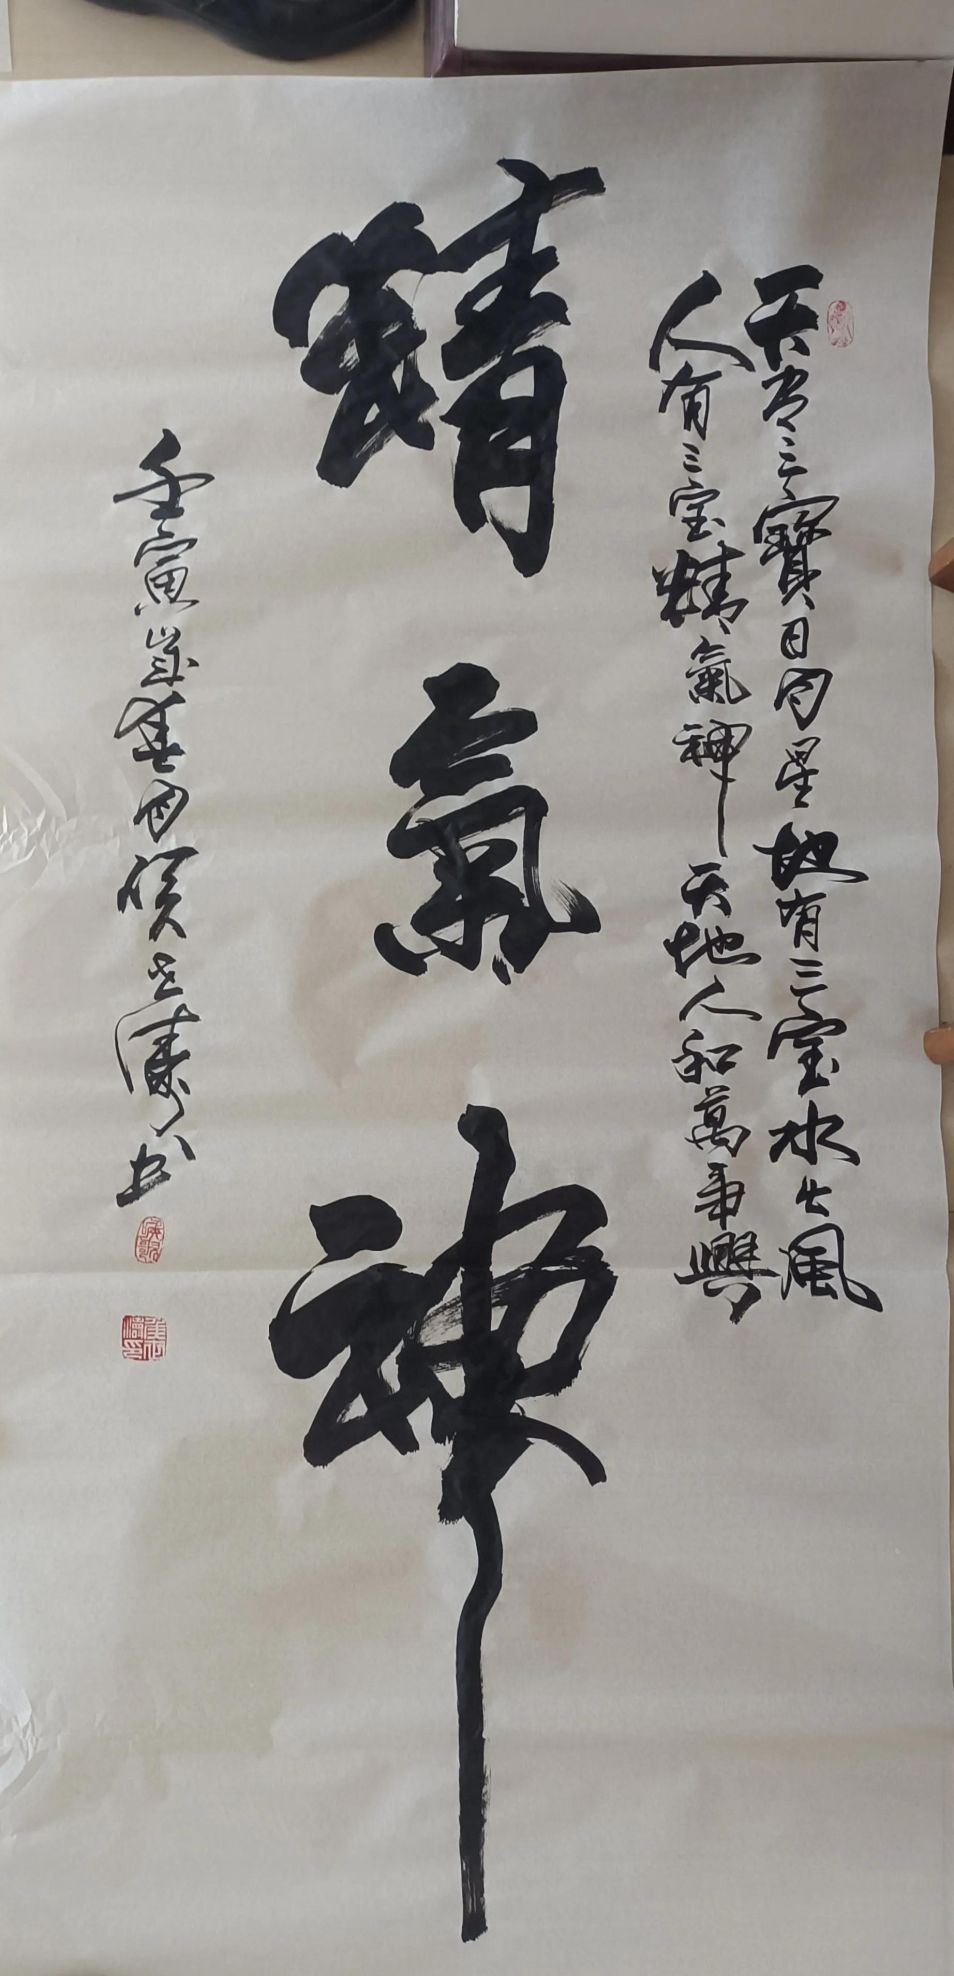 天有三寶日月星地有三宝水火風
人有三宝精氣神天地人和萬事興
精氣神
壬寅岁春月
书